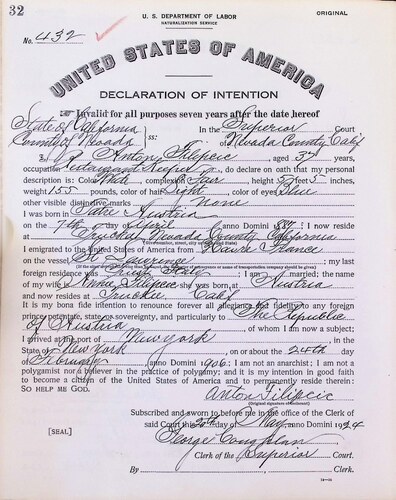 32
U. S. DEPARTMENT OF LABOR
NATURALIZATION SERVICE
ORIGINAL
No. 432
UNITED STATES OF AMERICA
DECLARATION OF INTENTION
Invalid for all purposes seven years after the date hereof
State of California
County of Nevada
ss:
In the Superior Court
of Nevada County Calif
I, Antony Filipcic, aged 37 years,
occupation Restaurant Keeper, do declare on oath that my personal
description is: Color White, complexion Fair, height 5 feet 5 inches,
weight 155 pounds, color of hair Light, color of eyes Blue
other visible distinctive marks none
I was born in Austria
on the 7th day of April, anno Domini 1887; I now reside
at Truckee Nevada County California
I emigrated to the United States of America from Havre France
on the vessel St Lawrence; my last
foreign residence was Italy; I am married; the name
of my wife is Anna Filipcic; she was born at Austria
and now resides at Truckee Calif
It is my bona fide intention to renounce forever all allegiance and fidelity to any foreign
prince, potentate, state, or sovereignty, and particularly to The Republic
of Austria, of whom I am now a subject;
I arrived at the port of New York, in the
State of New York, on or about the 24th day
of February, anno Domini 1906; I am not an anarchist; I am not a
polygamist nor a believer in the practice of polygamy; and it is my intention in good faith
to become a citizen of the United States of America and to permanently reside therein:
SO HELP ME GOD.
Anton Filipcic
(Original signature of declarant)
Subscribed and sworn to before me in the office of the Clerk of
said Court this 20th day of May, anno Domini 1924
[SEAL]
George Coughlan
Clerk of the Superior Court.
By, Clerk.